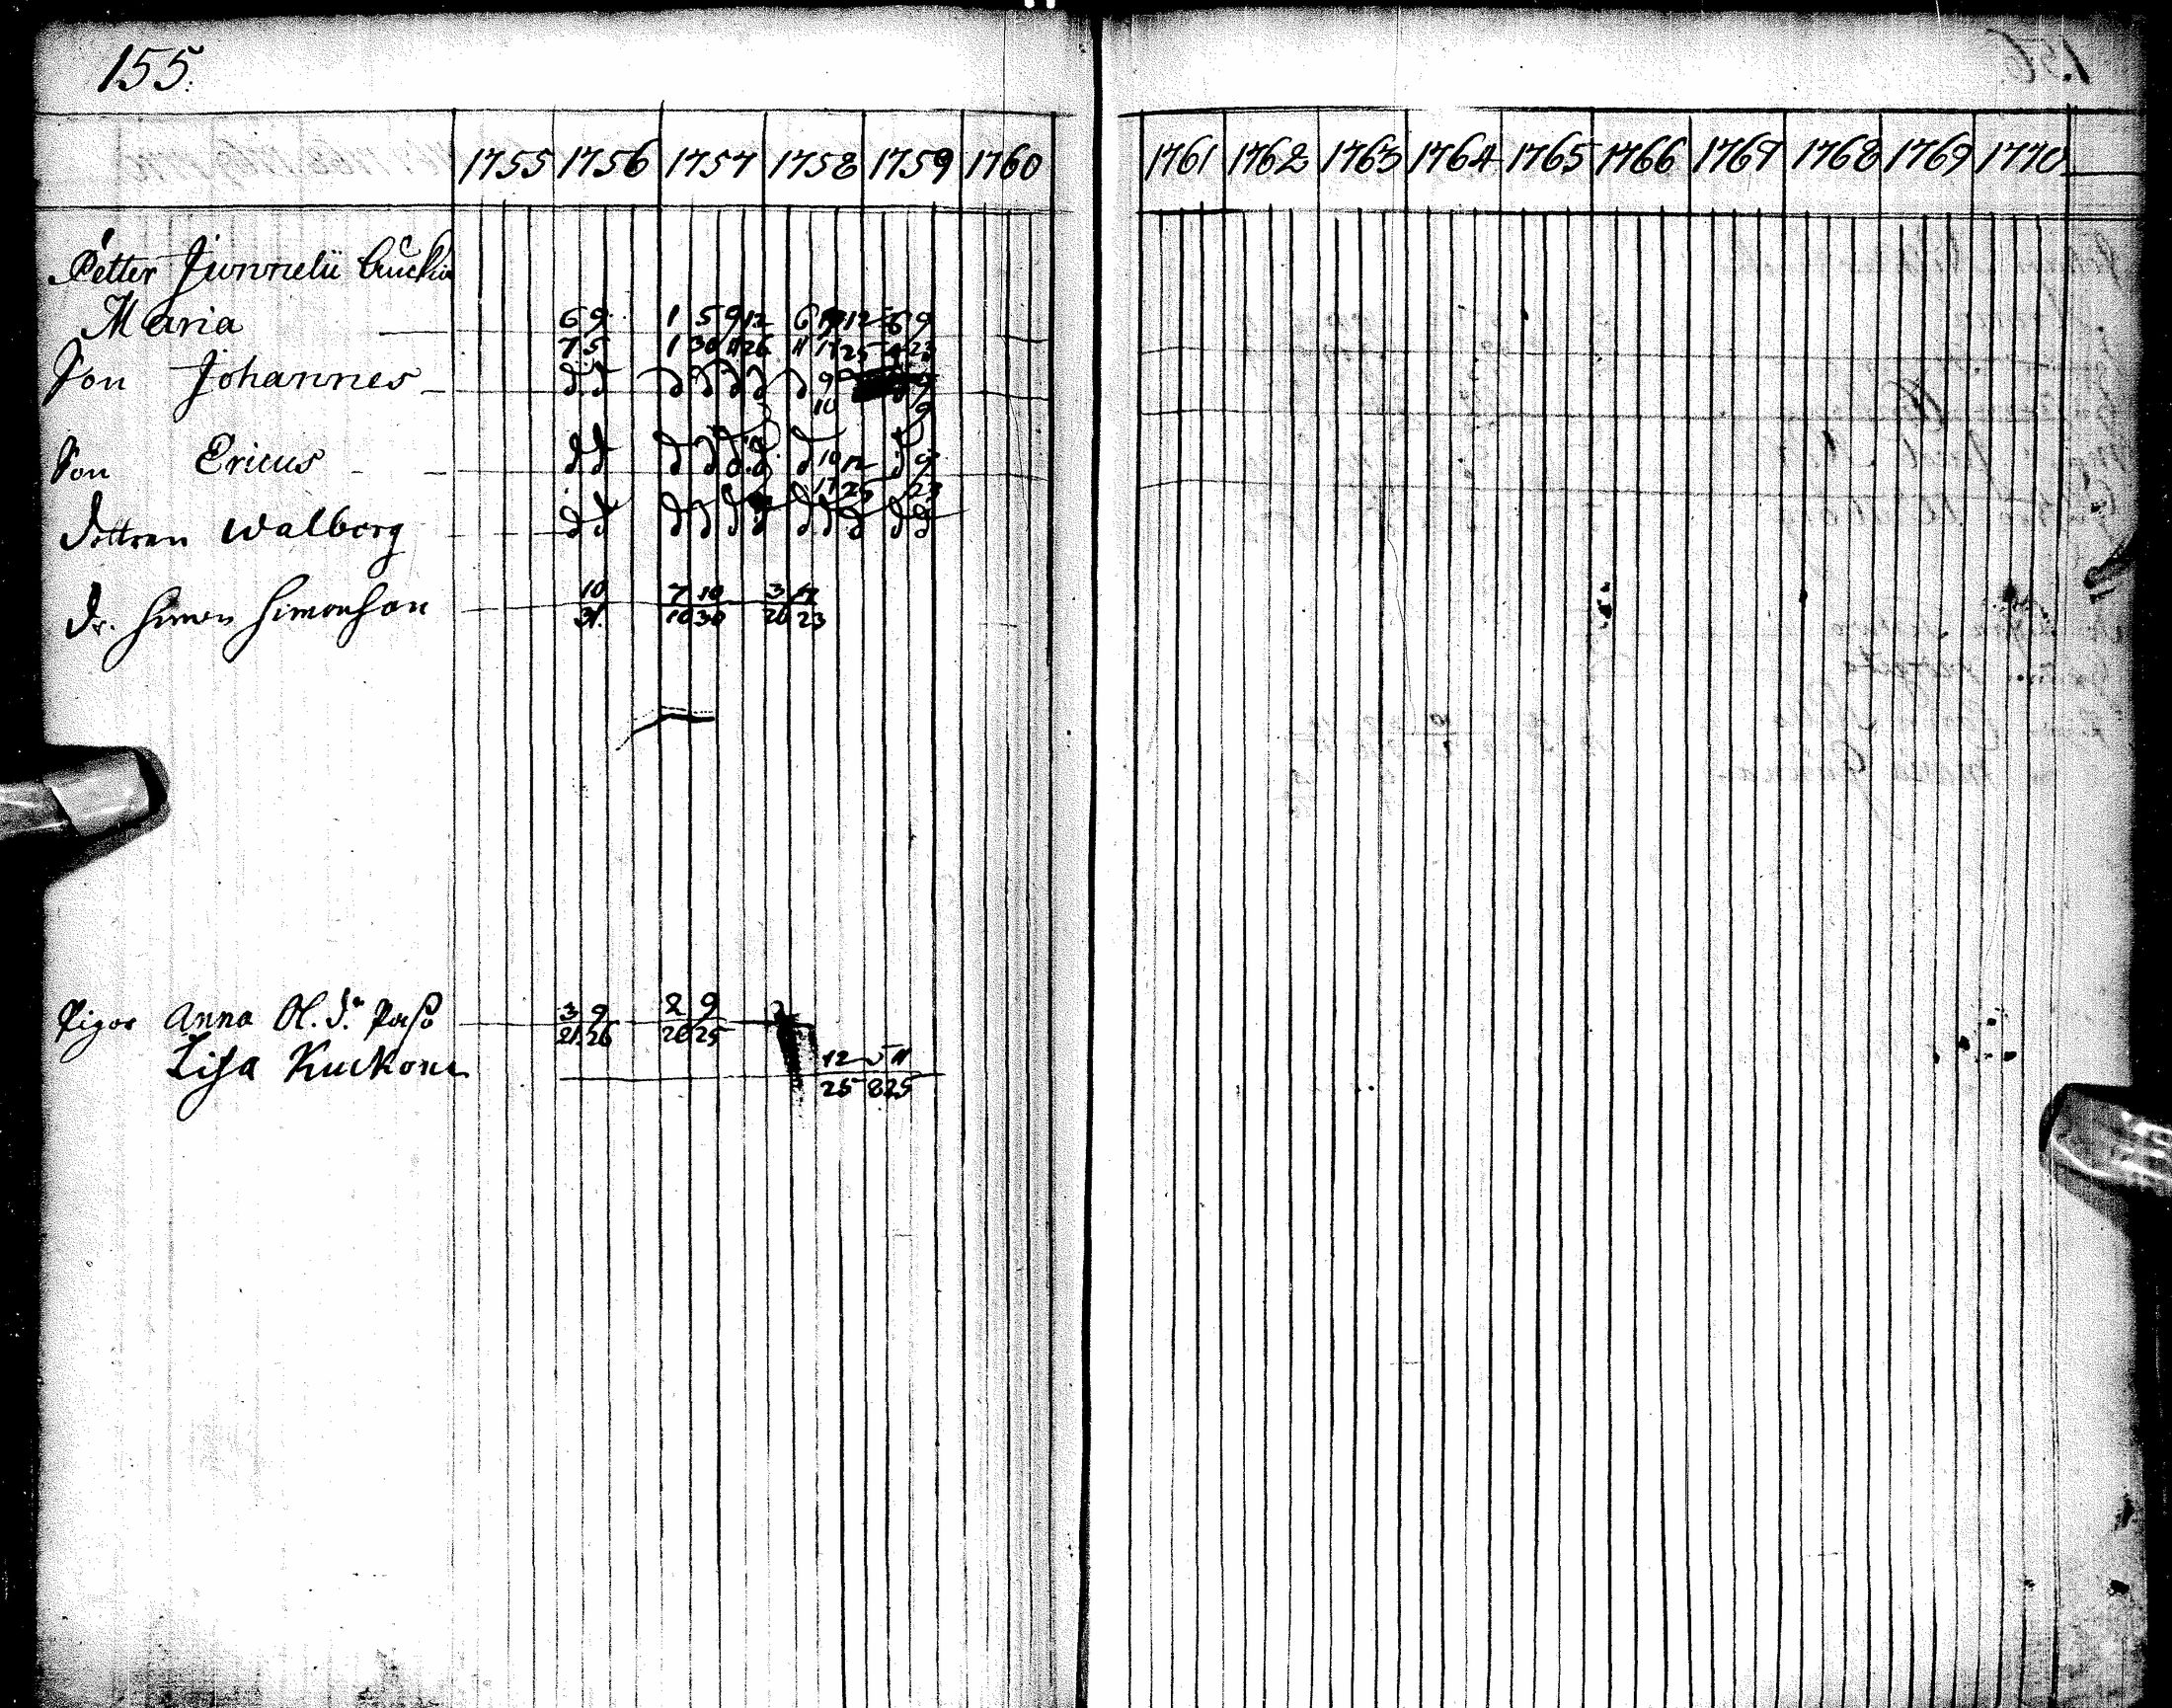 155.
1755 1756 1757 1758 1759 1760
1761 1762 1763 1764 1765 1766 1767 1768 1769 1770
Petter Junnelii
Maria 6 9 1 5 9 12 6 12 6 9
7 5 1 30 11 26 11 17 25 4 23
Son Johannes d d d d d d d 9
10 9
Son Ericus d d d d d d d 10 12 d 9
17 25 23
dottren Walborg d d d d d d d d d d d
Dr. Simon Simonson 10 7 10 3
31. 10 30 26 23
Pigor Anna Ol. dr. 3 9 2 9
21 26 20 25
Lisa Kuckone 12 5 11
25 8 25